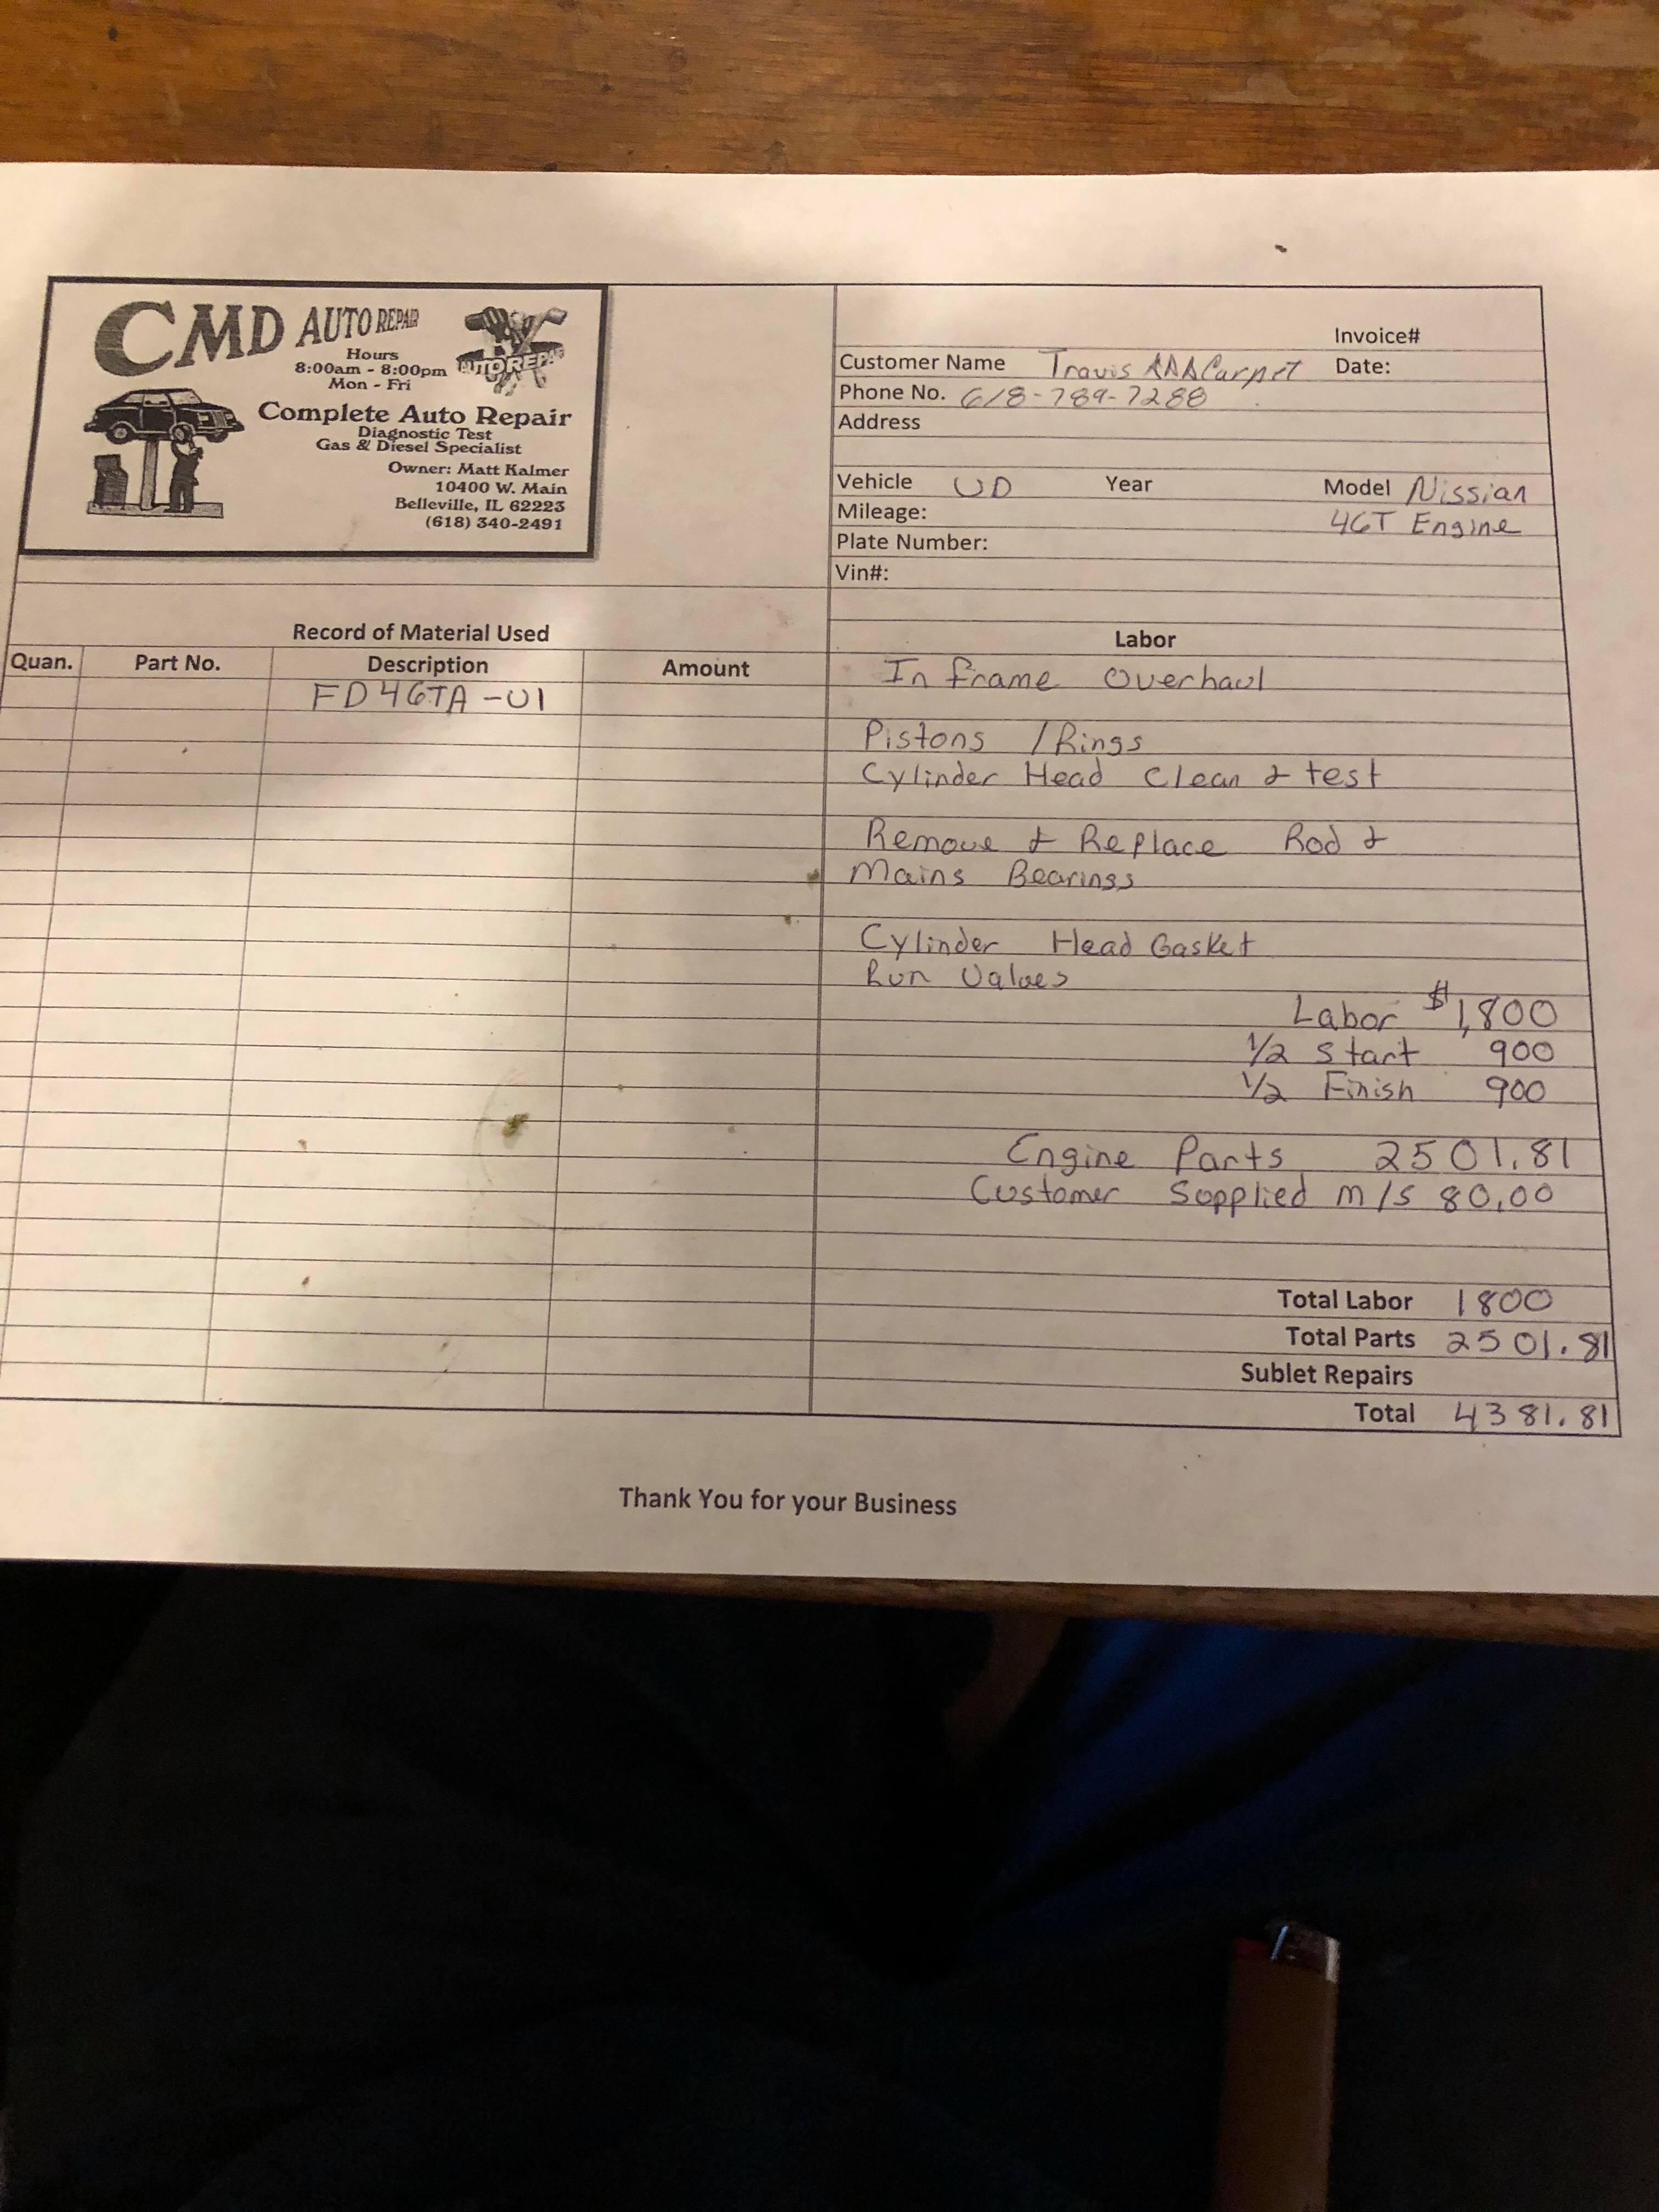 CMD AUTO REPAIR
Hours
8:00am - 8:00pm
Mon - Fri
AUTO REPAIR
Complete Auto Repair
Diagnostic Test
Gas & Diesel Specialist
Owner: Matt Kalmer
10400 W. Main
Belleville, IL 62223
(618) 340-2491
Invoice#
Customer Name Travis AAA Carpet Date:
Phone No. 618-789-7288
Address
Vehicle UD Year Model Nissian
Mileage: 46T Engine
Plate Number:
Vin#:
Record of Material Used
Quan. Part No. Description Amount
FD46TA-U1
Labor
In frame Overhaul
Pistons / Rings
Cylinder Head Clean & test
Remove & Replace Rod &
Mains Bearings
Cylinder Head Gasket
Run Valves
Labor $1,800
1/2 Start 900
1/2 Finish 900
Engine Parts 2501.81
Customer Supplied m/s 80.00
Total Labor 1800
Total Parts 2501.81
Sublet Repairs
Total 4381.81
Thank You for your Business